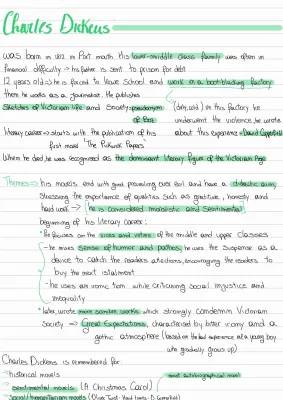 Charles Dickens
was born in 1812 in Port mouth His lower-middle class family was often in
financial difficulty → his father is sent to prison for debt
12 years old → he is forced to leave school and work in a boot-blacking factory
then he works as a journalist. He publishes
Sketches of Victorian life and society: pseudonym of Boz
(dirty, acid) In this factory he underwent the violence, he wrote about this experience → David Copperfield
literary career → starts with the publication of his first novel 'The Pickwick Papers'
When he died, he was recognised as the dominant literary figure of the Victorian Age
Themes → his novels end with good prevailing over evil and have a didactic aim,
stressing the importance of qualities such as gratitude, honesty and
hard work → he is considered moralistic and sentimental
beginning of his literary career:
• he focuses on the vices and virtues of the middle and upper classes
- he mixes sense of humor and pathos, he uses the suspense as a
device to catch the readers attentions, encouraging the readers to
buy the next instalment
- he uses an ironic tone while criticising social injustice and
inequality
• later, wrote more sombre works which strongly condemn Victorian
Society → Great Expectations, characterised by bitter irony and a
gothic atmosphere (based on the bad experience of a young boy
who gradually grows up)
Charles Dickens is remembered for
- historical novels
most autobiographical novel
- sentimental novels (A Christmas Carol)
- Social/humanitarian novels (Oliver Twist - Hard times - D. Copperfield)